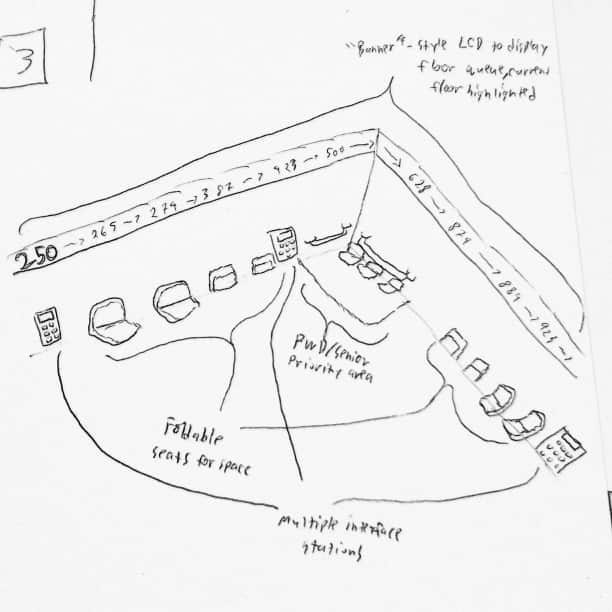 3
"Banner"-style LCD to display
floor queue, current
floor highlighted
250 → 265 → 274 → 387 → 423 → 500 →
→ 628 → 874 → 884 → 925 →
PWD/Senior
Priority area
Foldable
seats for space
Multiple interface
stations